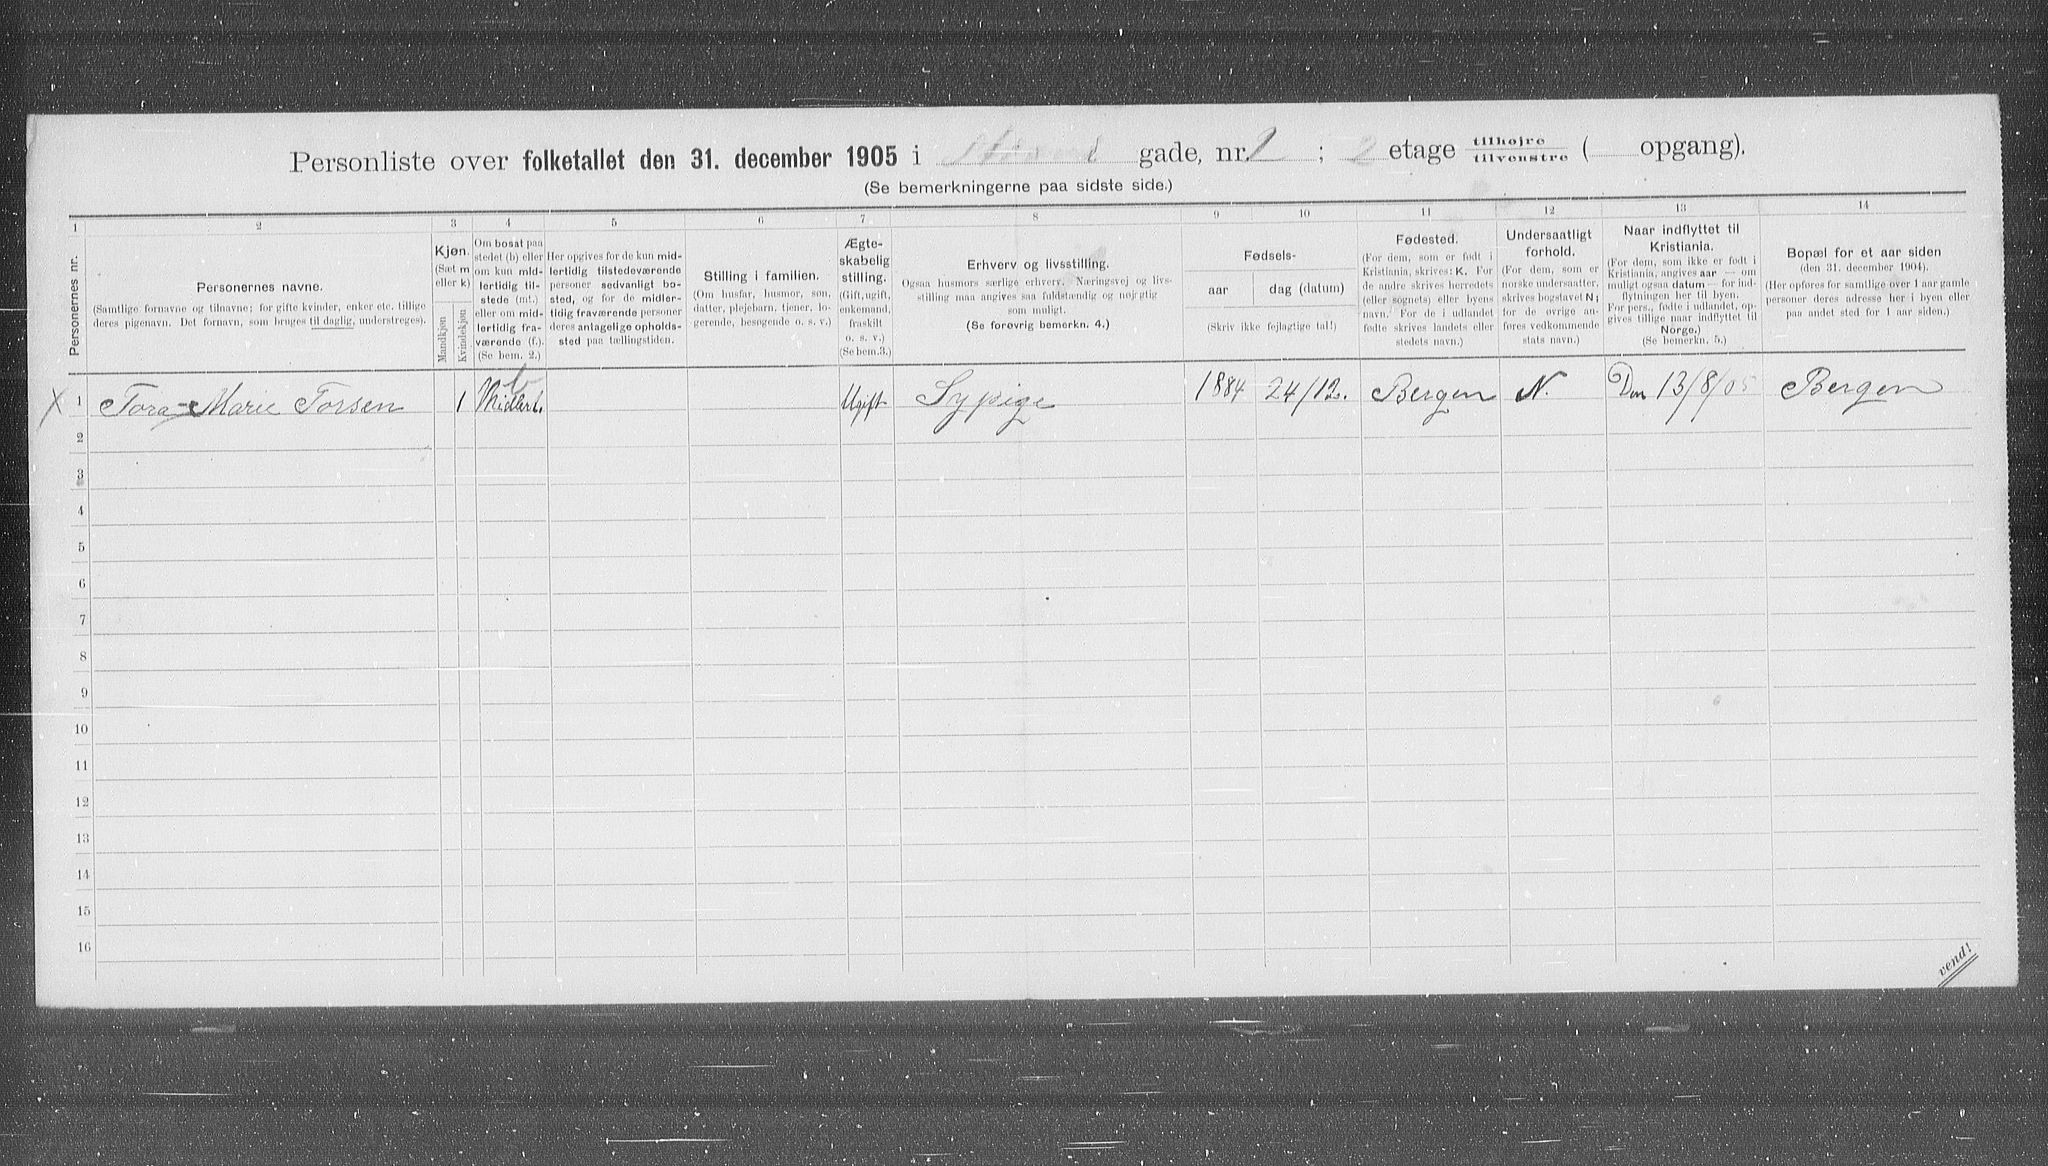 Personliste over folketallet den 31. december 1905 i gade, nr. 1 ; 2 etage tilhøjre tilvenstre ( opgang).
(Se bemerkningerne paa sidste side.)
1 2 3 4 5 6 7 8 9 10 11 12 13 14
Personernes nr.
Personernes navne.
(Samtlige fornavne og tilnavne; for gifte kvinder, enker etc. tillige
deres pigenavn. Det fornavn, som bruges til daglig, understreges).
Kjøn.
(Sæt m
eller k)
Mandkjøn
Kvindekjøn
Om bosat paa
stedet (b) eller
om kun mid-
lertidig til-
stede (mt.)
eller om mid-
lertidig fra-
værende (f.).
(Se bem. 2.)
Her opgives for de kun mid-
lertidig tilstedeværende
personer sedvanligt bo-
sted, og for de midler-
tidig fraværende personer
deres antagelige opholds-
sted paa tællingstiden.
Stilling i familien.
(Om husfar, husmor, søn,
datter, plejebarn, tjener, lo-
gerende, besøgende o. s. v.)
Ægte-
skabelig
stilling.
(Gift, ugift,
enkemand,
fraskilt
o. s. v.)
(Se bem. 3.)
Erhverv og livsstilling.
Ogsaa husmors særlige erhverv. Næringsvej og livs-
stilling maa angives saa fuldstændig og nøjagtig
som muligt.
(Se forøvrig bemerkn. 4.)
Fødsels-
aar
dag (datum)
(Skriv ikke fejlagtige tal!)
Fødested.
(For dem, som er født i
Kristiania, skrives: K. For
de andre skrives herredets
(eller sognets) eller byens
navn. For de i udlandet
fødte skrives landets eller
stedets navn.)
Undersaatligt
forhold.
(For dem, som er
norske undersaatter,
skrives bogstavet N;
for de øvrige an-
føres vedkommende
stats navn.)
Naar indflyttet til
Kristiania.
(For dem, som ikke er født i
Kristiania, angives aar — om
muligt ogsaa datum — for ind-
flytningen her til byen.
For pers., fødte i udlandet, op-
gives tillige naar indflyttet til
Norge.)
(Se bemerkn. 5.)
Bopæl for et aar siden
(den 31. december 1904).
(Her opføres for samtlige over 1 aar gamle
personer deres adresse her i byen eller
paa andet sted for 1 aar siden.)
X 1 Tora Marie Torsen 1 b Midlert. Ugift Sypige 1884 24/12. Bergen N. Den 13/8/05 Bergen
2
3
4
5
6
7
8
9
10
11
12
13
14
15
16
vend!